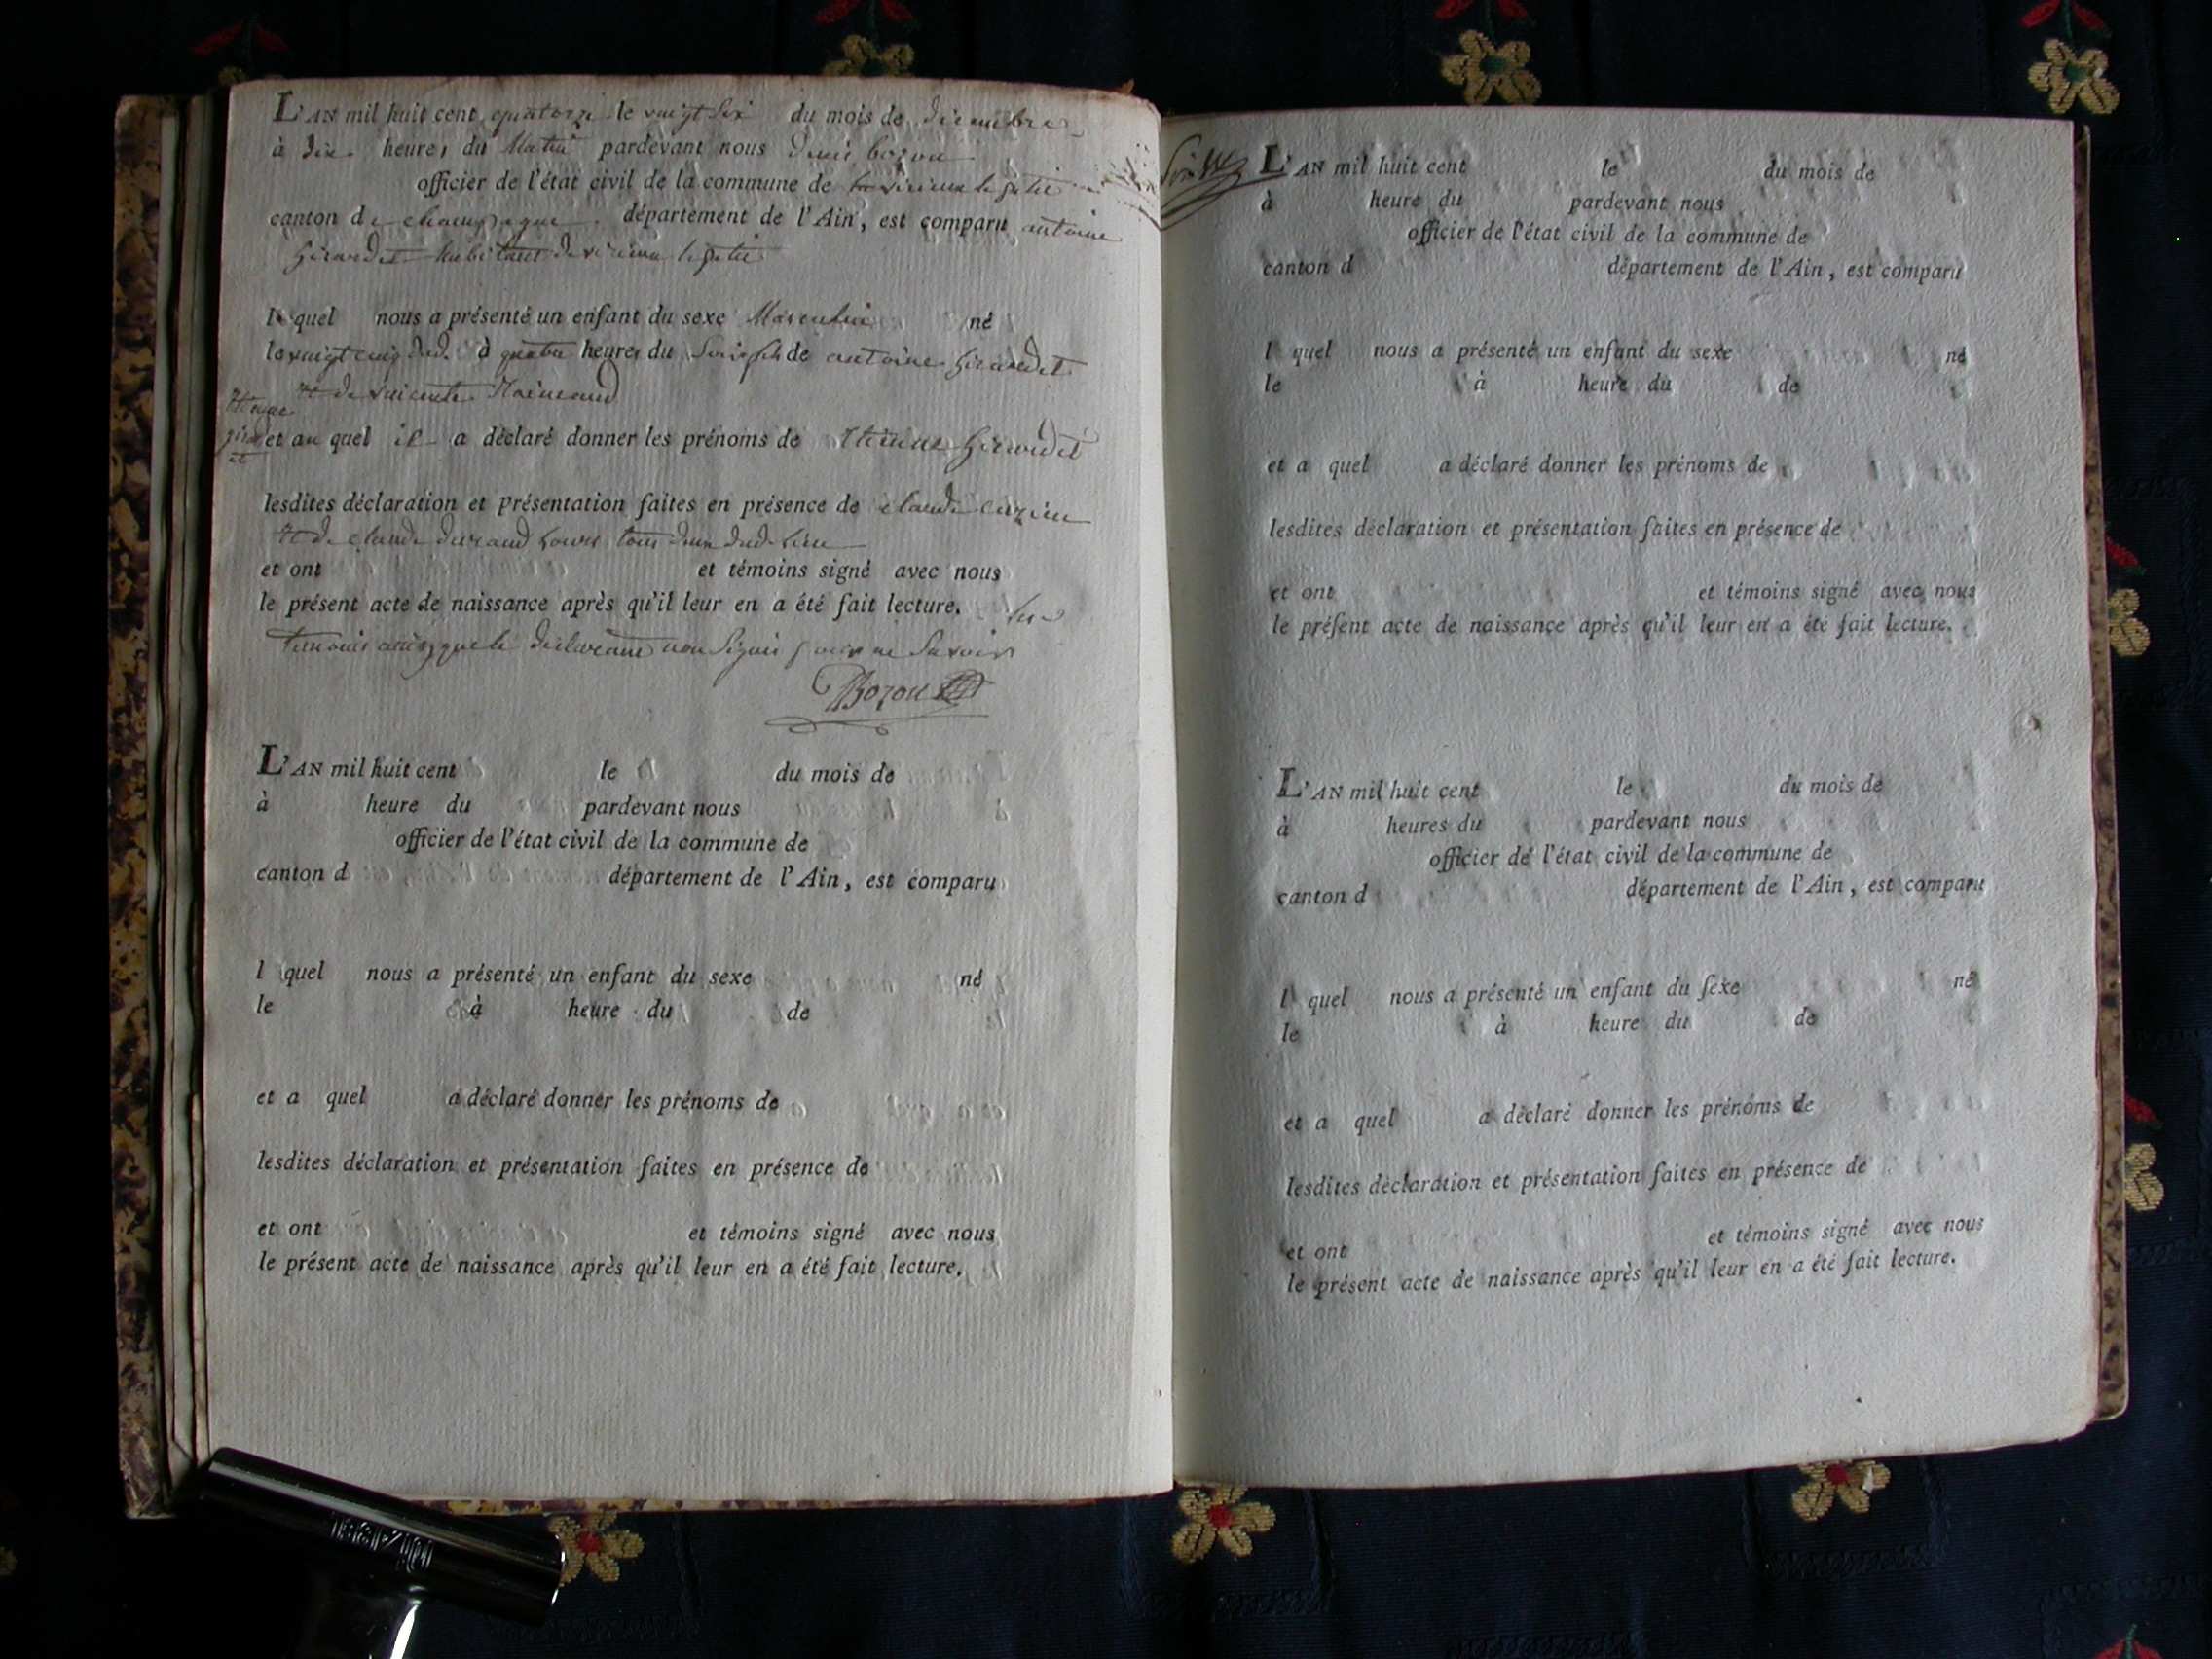 L'AN mil huit cent quatorze le vingt six du mois de décembre
à dix heures du Matin pardevant nous denis bozon
officier de l'état civil de la commune de virieux le petit
canton de champagne département de l'Ain, est comparu antoine
Girardet habitant de virieu le petit
lequel nous a présenté un enfant du sexe Masculin né
le vingt cinq dud. à quatre heures du Soir fils de antoine Girardet
et de
Etienne
girard
et
et au quel il a déclaré donner les prénoms de Etienne Girardet
lesdites déclaration et présentation faites en présence de claude
et de claude durand tous deux dud. lieu
et ont et témoins signé avec nous
le présent acte de naissance après qu'il leur en a été fait lecture. les
temoins ainsy que le declarant non Signés pour ne Savoir
Bozon
L'AN mil huit cent le du mois de
à heure du pardevant nous
officier de l'état civil de la commune de
canton d département de l'Ain, est comparu
l quel nous a présenté un enfant du sexe né
le à heure du de
et a quel a déclaré donner les prénoms de
lesdites déclaration et présentation faites en présence de
et ont et témoins signé avec nous
le présent acte de naissance après qu'il leur en a été fait lecture.
L'AN mil huit cent le du mois de
à heure du pardevant nous
officier de l'état civil de la commune de
canton d département de l'Ain, est comparu
l quel nous a présenté un enfant du sexe né
le à heure du de
et a quel a déclaré donner les prénoms de
lesdites déclaration et présentation faites en présence de
et ont et témoins signé avec nous
le préſent acte de naissance après qu'il leur en a été fait lecture.
L'AN mil huit cent le du mois de
à heures du pardevant nous
officier de l'état civil de la commune de
canton d département de l'Ain, est comparu
l quel nous a présenté un enfant du ſexe né
le à heure du de
et a quel a déclaré donner les prénoms de
lesdites déclaration et présentation faites en présence de
et ont et témoins signé avec nous
le présent acte de naissance après qu'il leur en a été fait lecture.